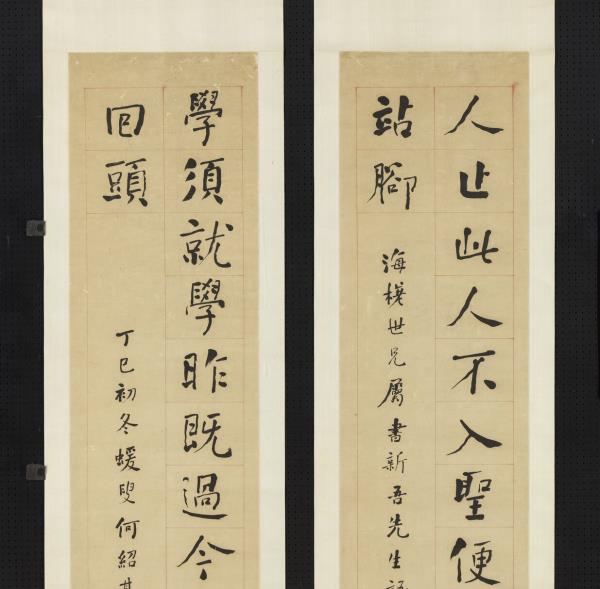 人止此人不入聖便
站腳
海槎世兄屬書新吾先生語
學須就學昨既過今
回頭
丁巳初冬蝯叟何紹基